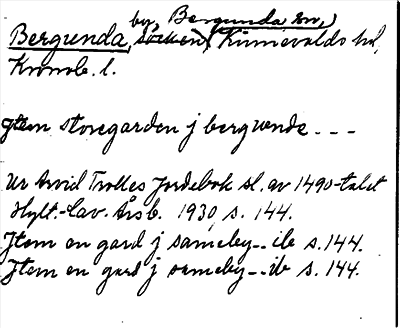 by, Bergunda sn,
Bergunda, socken, Kinnevalds hd,
Kronob. l.
Jtem storegarden j bergwnde - - -
Ur Arvid Trolles Jordebok sl. av 1490-talet
Hylt.-Cav. Årsb. 1930, s. 144.
Jtem en gard j sameby - - ib s. 144.
Jtem en gard j sameby - - ib s. 144.